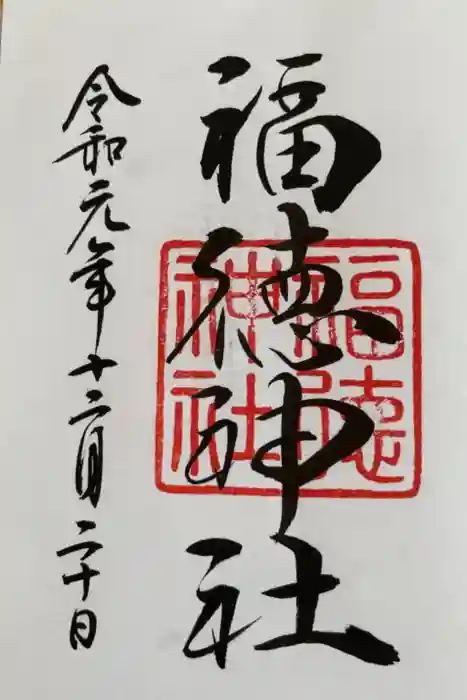 福徳神社
令和元年十二月二十日
福徳神社